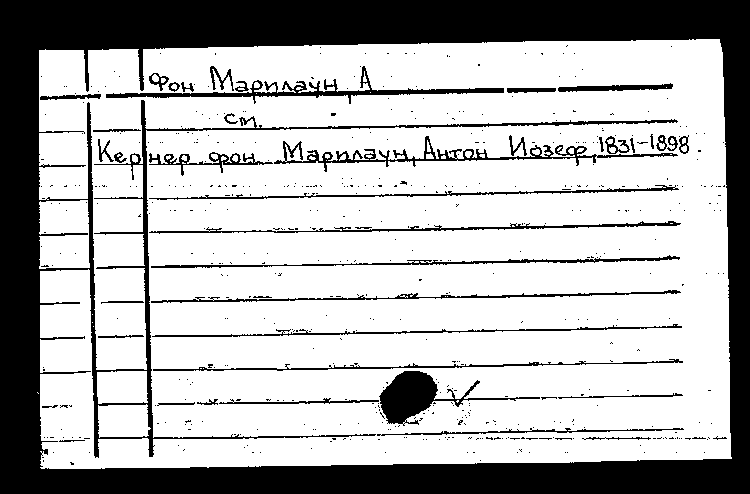 Фон Марилаун, А
см.
Кернер фон Марилаун, Антон Иозеф, 1831-1898.